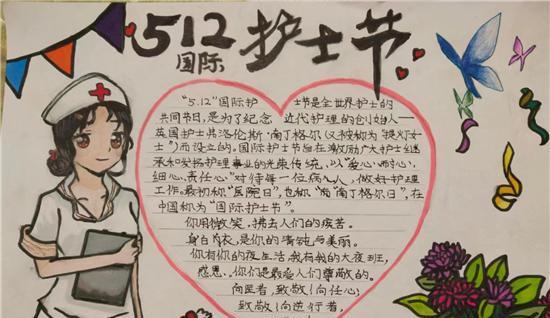 512
国际
护士节
"5.12"国际护士节是全世界护士的
共同节日,是为了纪念近代护理的创始人一
英国护士弗洛伦斯·南丁格尔(又被称为"提灯女
士")而设立的。国际护士节旨在激励广大护士继
承和发扬护理事业的光荣传统,以"爱心、耐心、
细心、责任心"对待每一位病人,做好护理
工作。最初称"医院日",也称"南丁格尔日",在
中国称为"国际护士节"。
你用微笑,拂去人们的疾苦。
身白衣,是你的清纯与美丽。
你有你的夜生活,我有我的大夜班,
感恩,你们是最受人们尊敬的。
向医者,致敬!向仁心;
致敬!向逆行者,